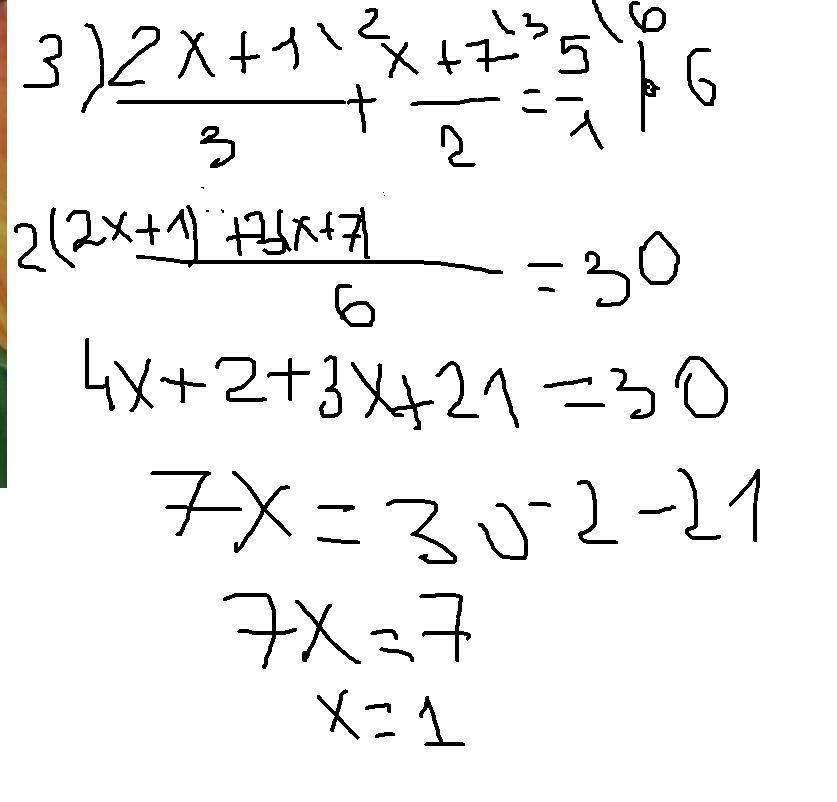 3) (2x+1\²)/3 + (x+7\³)/2 = 5\⁶/1 |·6
(2(2x+1) +3(x+7))/6 = 30
4x+2+3x+21=30
7x=30-2-21
7x=7
x=1